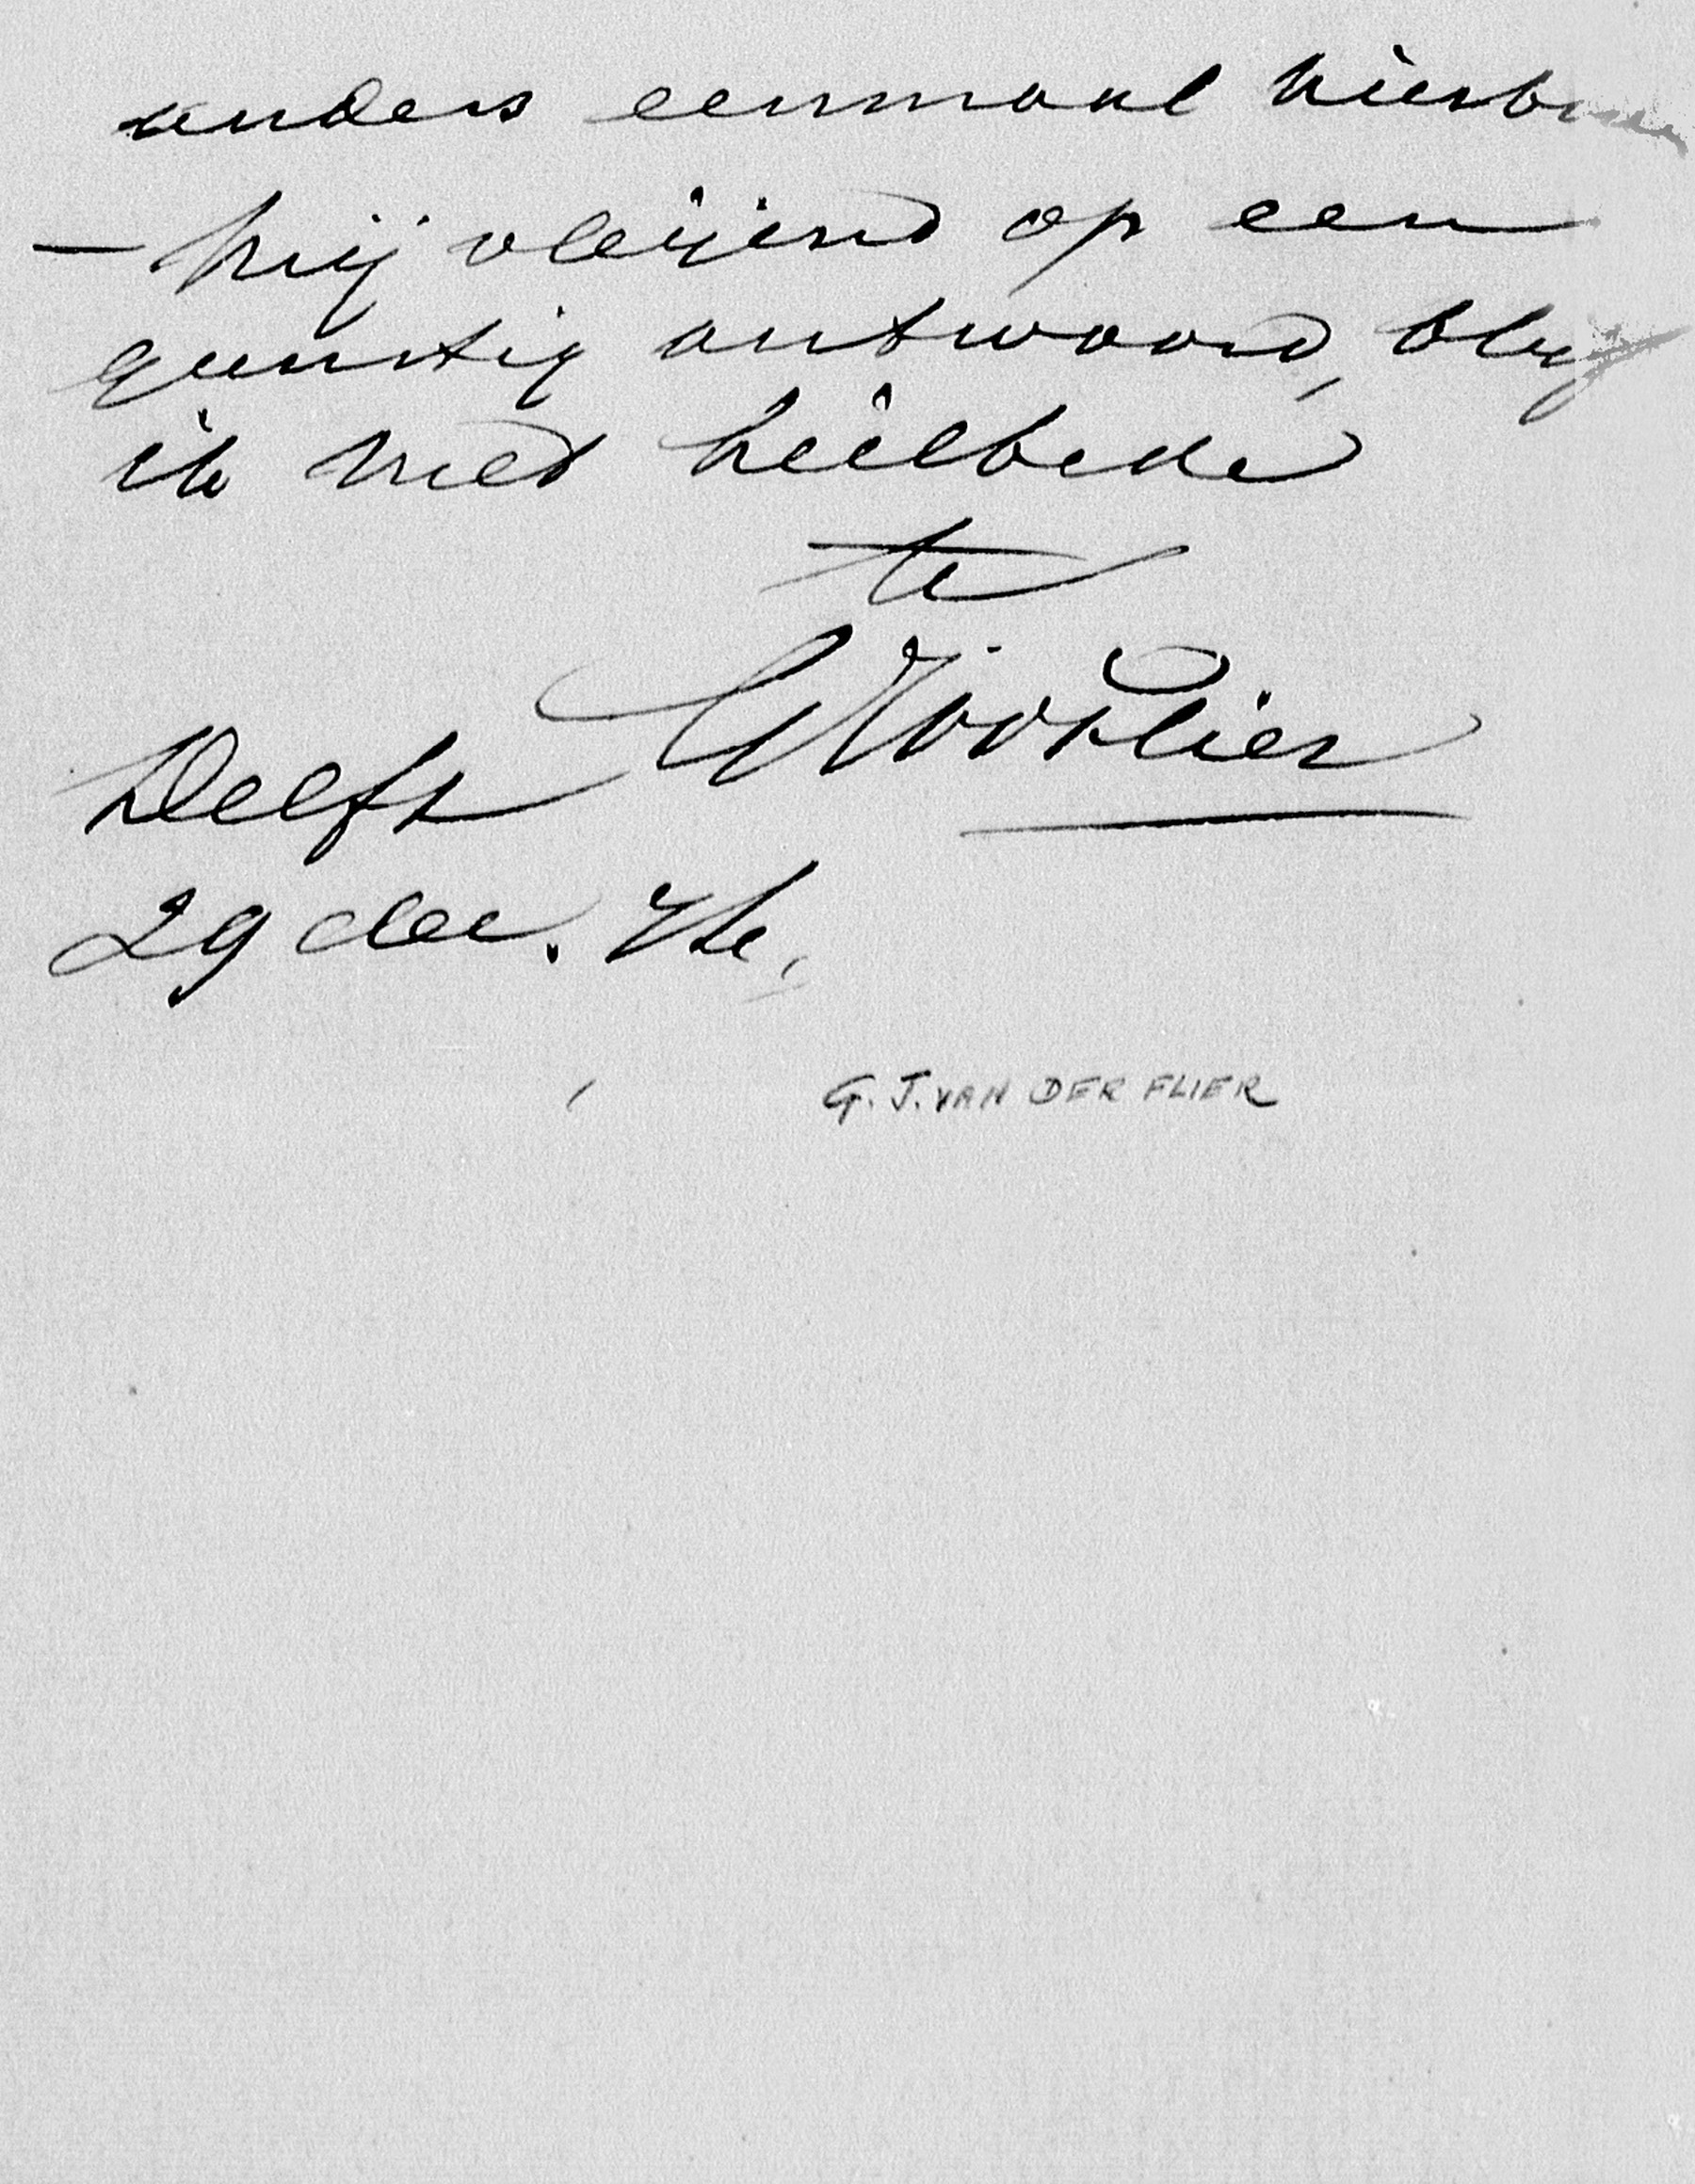 anders eenmaal
— Mij vleijend op een
gunstig antwoord,
ik met heilbede
te
GJvdFlier
Delft
29 dec.
G. J. VAN DER FLIER